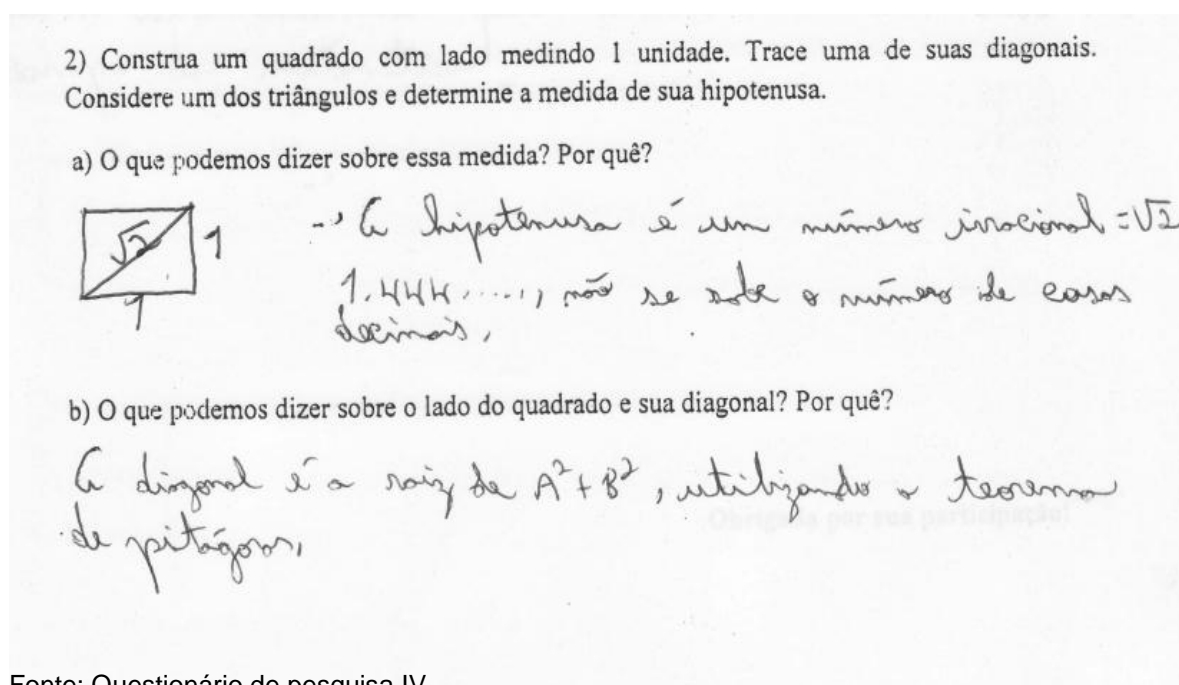 2) Construa um quadrado com lado medindo 1 unidade. Trace uma de suas diagonais.
Considere um dos triângulos e determine a medida de sua hipotenusa.
a) O que podemos dizer sobre essa medida? Por quê?
√2 1
1
A hipotenusa é um número irracional = √2
1.444....., não se sabe o número de casas
decimais.
b) O que podemos dizer sobre o lado do quadrado e sua diagonal? Por quê?
A diagonal é a raiz de A²+B², utilizando o teorema
de pitágoras,
Obrigada por sua participação!
Fonte: Questionário de pesquisa IV